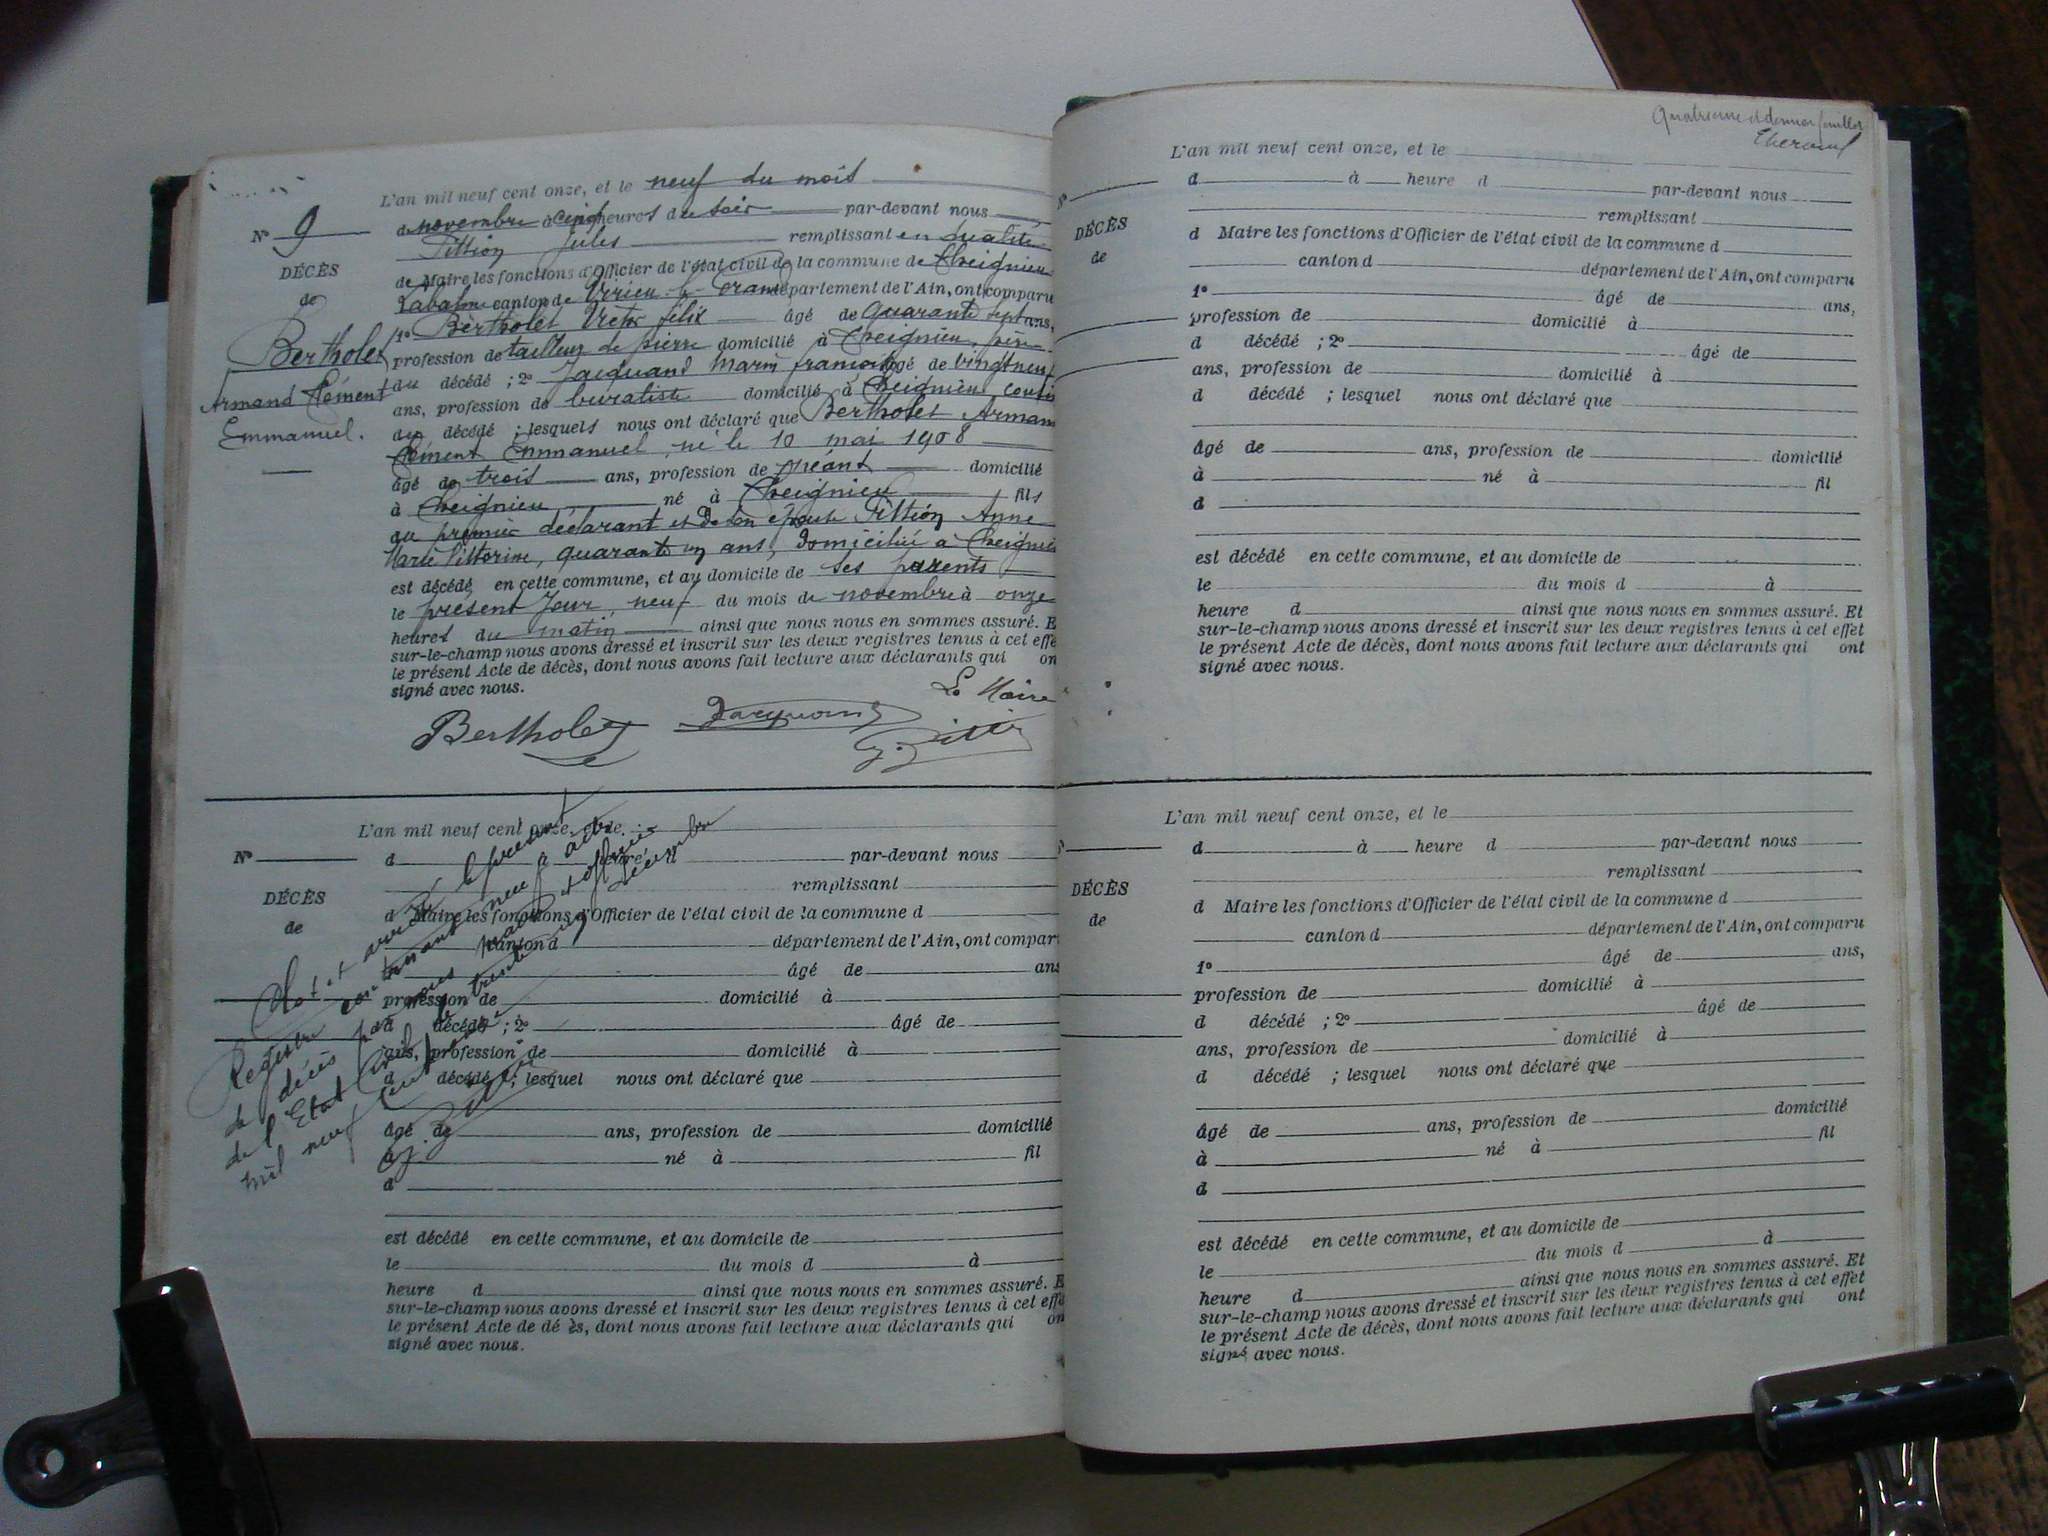 L'an mil neuf cent onze, et le neuf du mois
Nº 9
d novembre à cinq heures du soir par-devant nous
Pittion Jules remplissant en qualité
DÉCÈS
de Maire les fonctions d'Officier de l'état civil de la commune de Cheignieu
de
Labalme canton de Virieu-le-Grand département de l'Ain, ont comparu
1º Bertholet Victor félix âgé de quarante sept ans,
Bertholet
profession de tailleur de pierre domicilié à Cheignieu, père
du décédé ; 2º Jacquand Marie françois âgé de vingt neuf
Armand Clément
ans, profession de domicilié à Cheignieu cousin
Emmanuel.
du décédé ; lesquels nous ont déclaré que Bertholet Armand
Clément Emmanuel, né le 10 mai 1908
âgé de trois ans, profession de néant domicilié
à Cheignieu né à Cheignieu fils
du premier déclarant et de son épouse Pittion Anne
Marie Vittorine, quarante un ans, domiciliée à Cheignieu
est décédé en cette commune, et au domicile de ses parents
le présent jour, neuf du mois de novembre à onze
heures du matin ainsi que nous nous en sommes assuré. E
sur-le-champ nous avons dressé et inscrit sur les deux registres tenus à cet effe
le présent Acte de décès, dont nous avons fait lecture aux déclarants qui on
signé avec nous.
Le Maire
Bertholet Jacquand J. Pittion
L'an mil neuf cent onze, et le
Nº
d à heure d par-devant nous
remplissant
DÉCÈS
d Maire les fonctions d'Officier de l'état civil de la commune d
de
canton d département de l'Ain, ont comparu
1º âgé de ans
profession de domicilié à
d décédé ; 2º âgé de
ans, profession de domicilié à
d décédé ; lesquel nous ont déclaré que
âgé de ans, profession de domicilié
à né à fil
d
est décédé en cette commune, et au domicile de
le du mois d à
heure d ainsi que nous nous en sommes assuré. E
sur-le-champ nous avons dressé et inscrit sur les deux registres tenus à cet effe
le présent Acte de dé ès, dont nous avons fait lecture aux déclarants qui on
signé avec nous.
Clos et arrêté le présent
Registre contenant neuf actes
de décès par nous maire et officier
de l'Etat Civil le trente un décembre
mil neuf cent onze
J. Pittion
Quatrième et dernier feuillet
L'an mil neuf cent onze, et le
Nº
d à heure d par-devant nous
remplissant
DÉCÈS
d Maire les fonctions d'Officier de l'état civil de la commune d
de
canton d département de l'Ain, ont comparu
1º âgé de ans,
profession de domicilié à
d décédé ; 2º âgé de
ans, profession de domicilié à
d décédé ; lesquel nous ont déclaré que
âgé de ans, profession de domicilié
à né à fil
d
est décédé en cette commune, et au domicile de
le du mois d à
heure d ainsi que nous nous en sommes assuré. Et
sur-le-champ nous avons dressé et inscrit sur les deux registres tenus à cet effet
le présent Acte de décès, dont nous avons fait lecture aux déclarants qui ont
signé avec nous.
L'an mil neuf cent onze, et le
d à heure d par-devant nous
remplissant
DÉCÈS
d Maire les fonctions d'Officier de l'état civil de la commune d
de
canton d département de l'Ain, ont comparu
1º âgé de ans,
profession de domicilié à
d décédé ; 2º âgé de
ans, profession de domicilié à
d décédé ; lesquel nous ont déclaré que
âgé de ans, profession de domicilié
à né à fil
d
est décédé en cette commune, et au domicile de
le du mois d à
heure d ainsi que nous nous en sommes assuré. Et
sur-le-champ nous avons dressé et inscrit sur les deux registres tenus à cet effet
le présent Acte de décès, dont nous avons fait lecture aux déclarants qui ont
signé avec nous.